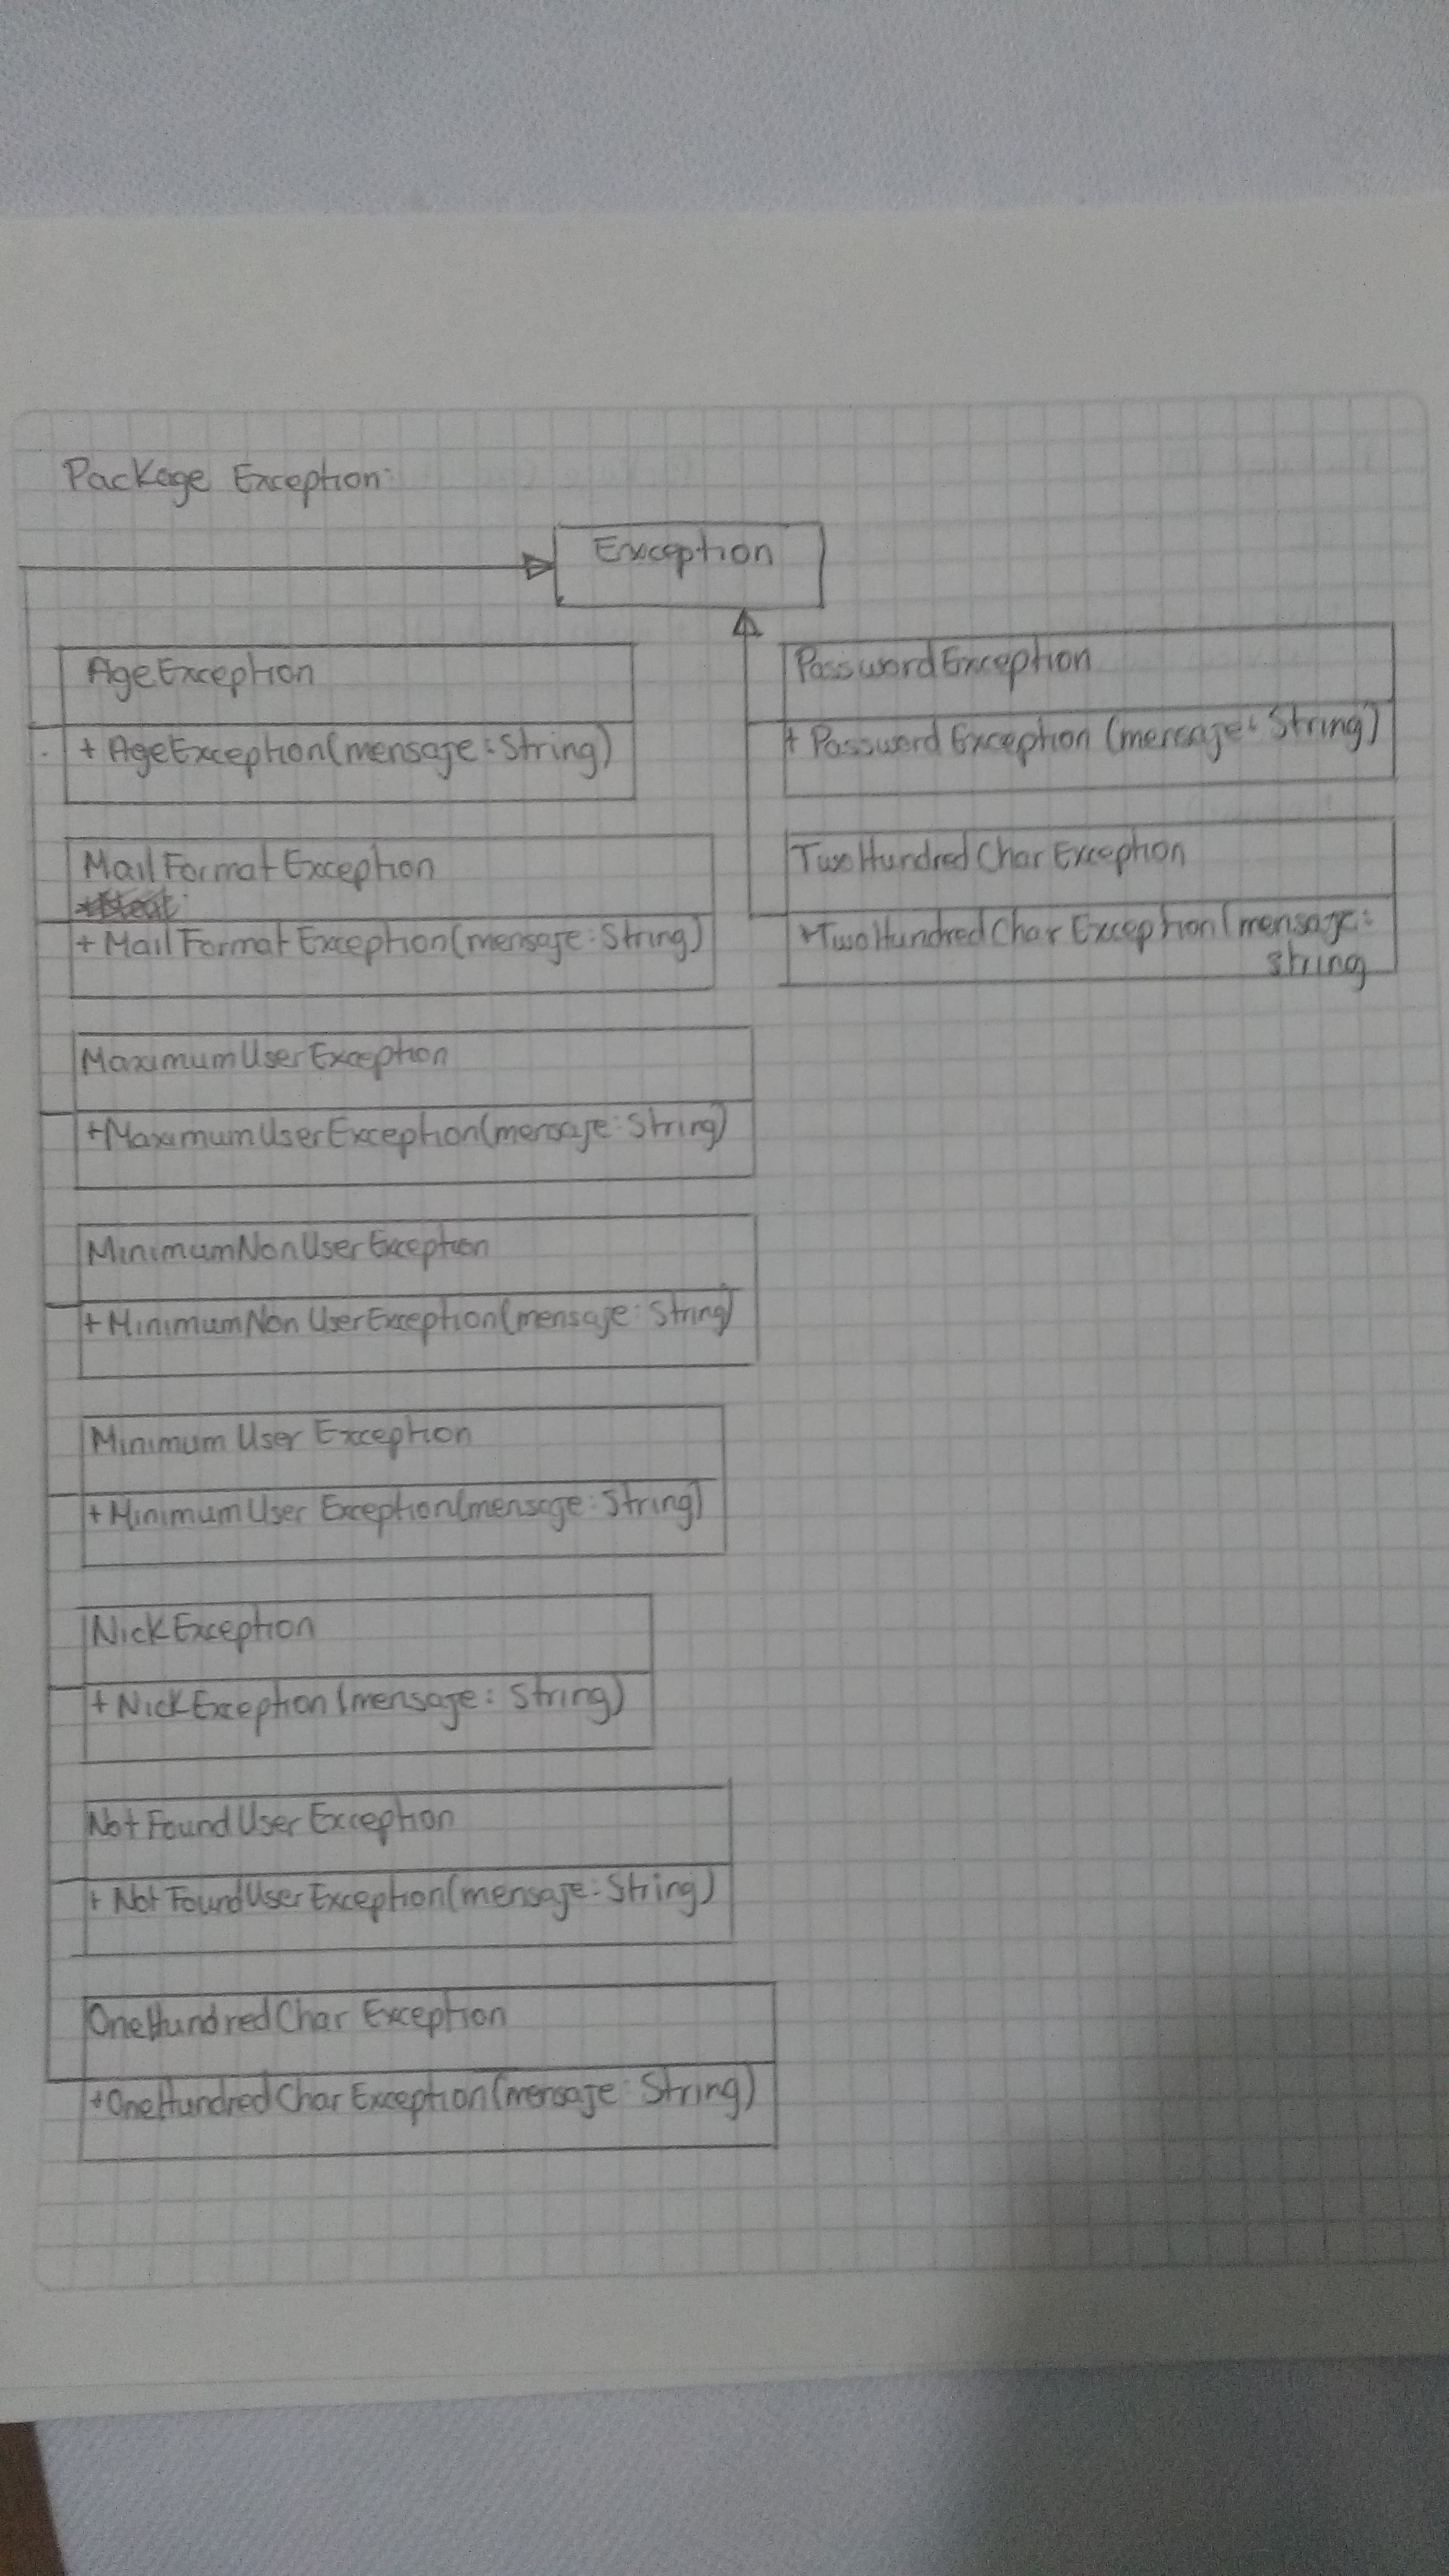 Package Exception:
Exception
AgeException
+ AgeException(mensaje: String)
MailFormatException
+ MailFormatException(mensaje: String)
MaximumUserException
+MaximumUserException(mensaje: String)
MinimumNonUserException
+ MinimumNonUserException(mensaje: String)
Minimum User Exception
+ MinimumUser Exception(mensaje: String)
NickException
+ NickException(mensaje: String)
NotFoundUserException
+ NotFoundUserException(mensaje: String)
OneHundredChar Exception
+OneHundredCharException(mensaje: String)
PasswordException
+ PasswordException (mensaje: String)
TwoHundredCharException
+TwoHundredCharException(mensaje:
string